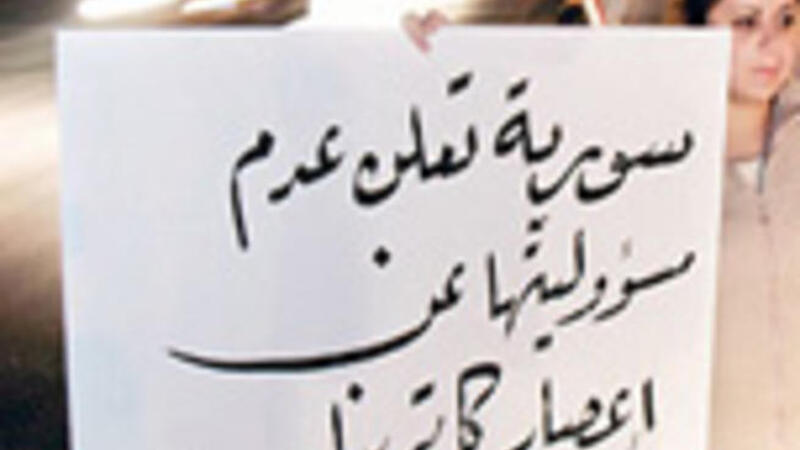 سورية تعلن عدم
مسؤوليتها عن
اعصار كاترينا